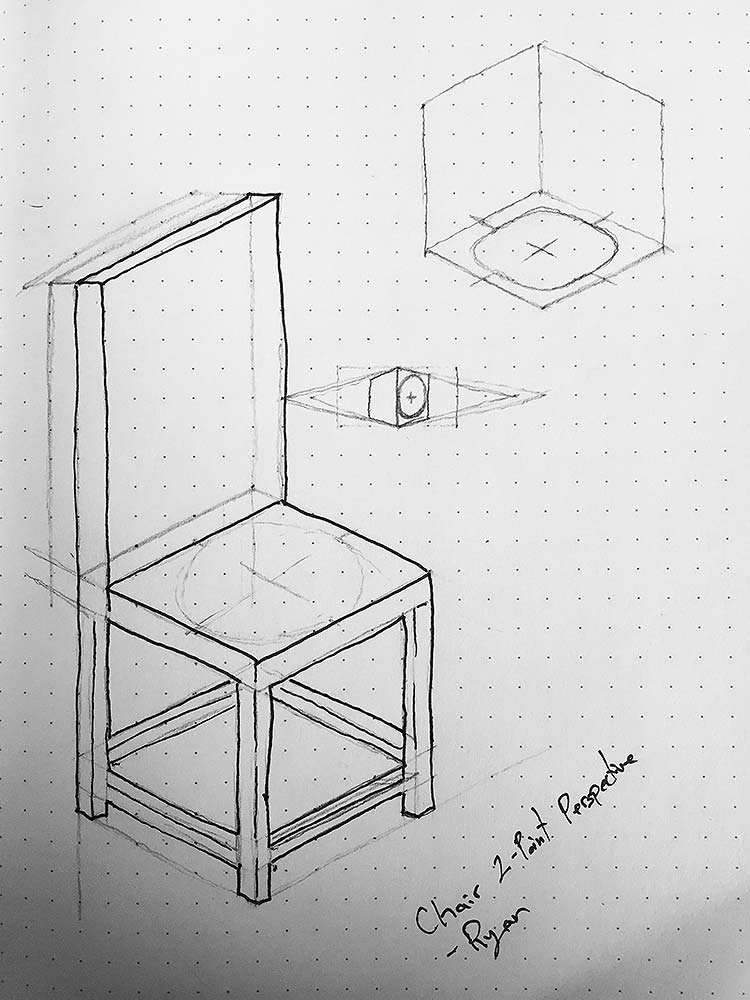 Chair 2-Point Perspective
- Ryan